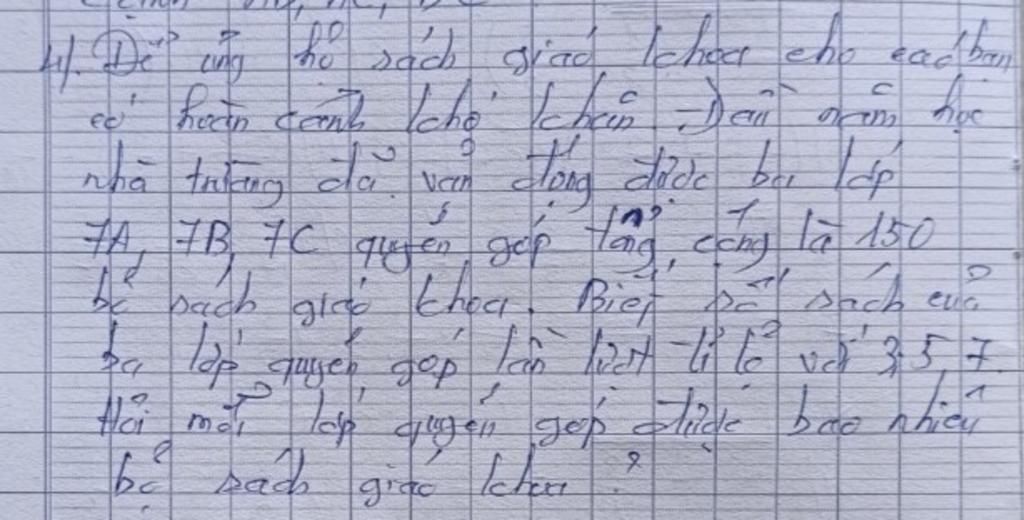 4). Để ủng hộ sách giáo khoa cho các bạn
có hoàn cảnh khó khăn. Đầu năm học
nhà trường đã vận động được ba lớp
7A, 7B, 7C quyên góp tổng cộng là 150
bộ sách giáo khoa. Biết số sách của
ba lớp quyên góp lần lượt tỉ lệ với 3, 5, 7.
Hỏi mỗi lớp quyên góp được bao nhiêu
bộ sách giáo khoa ?